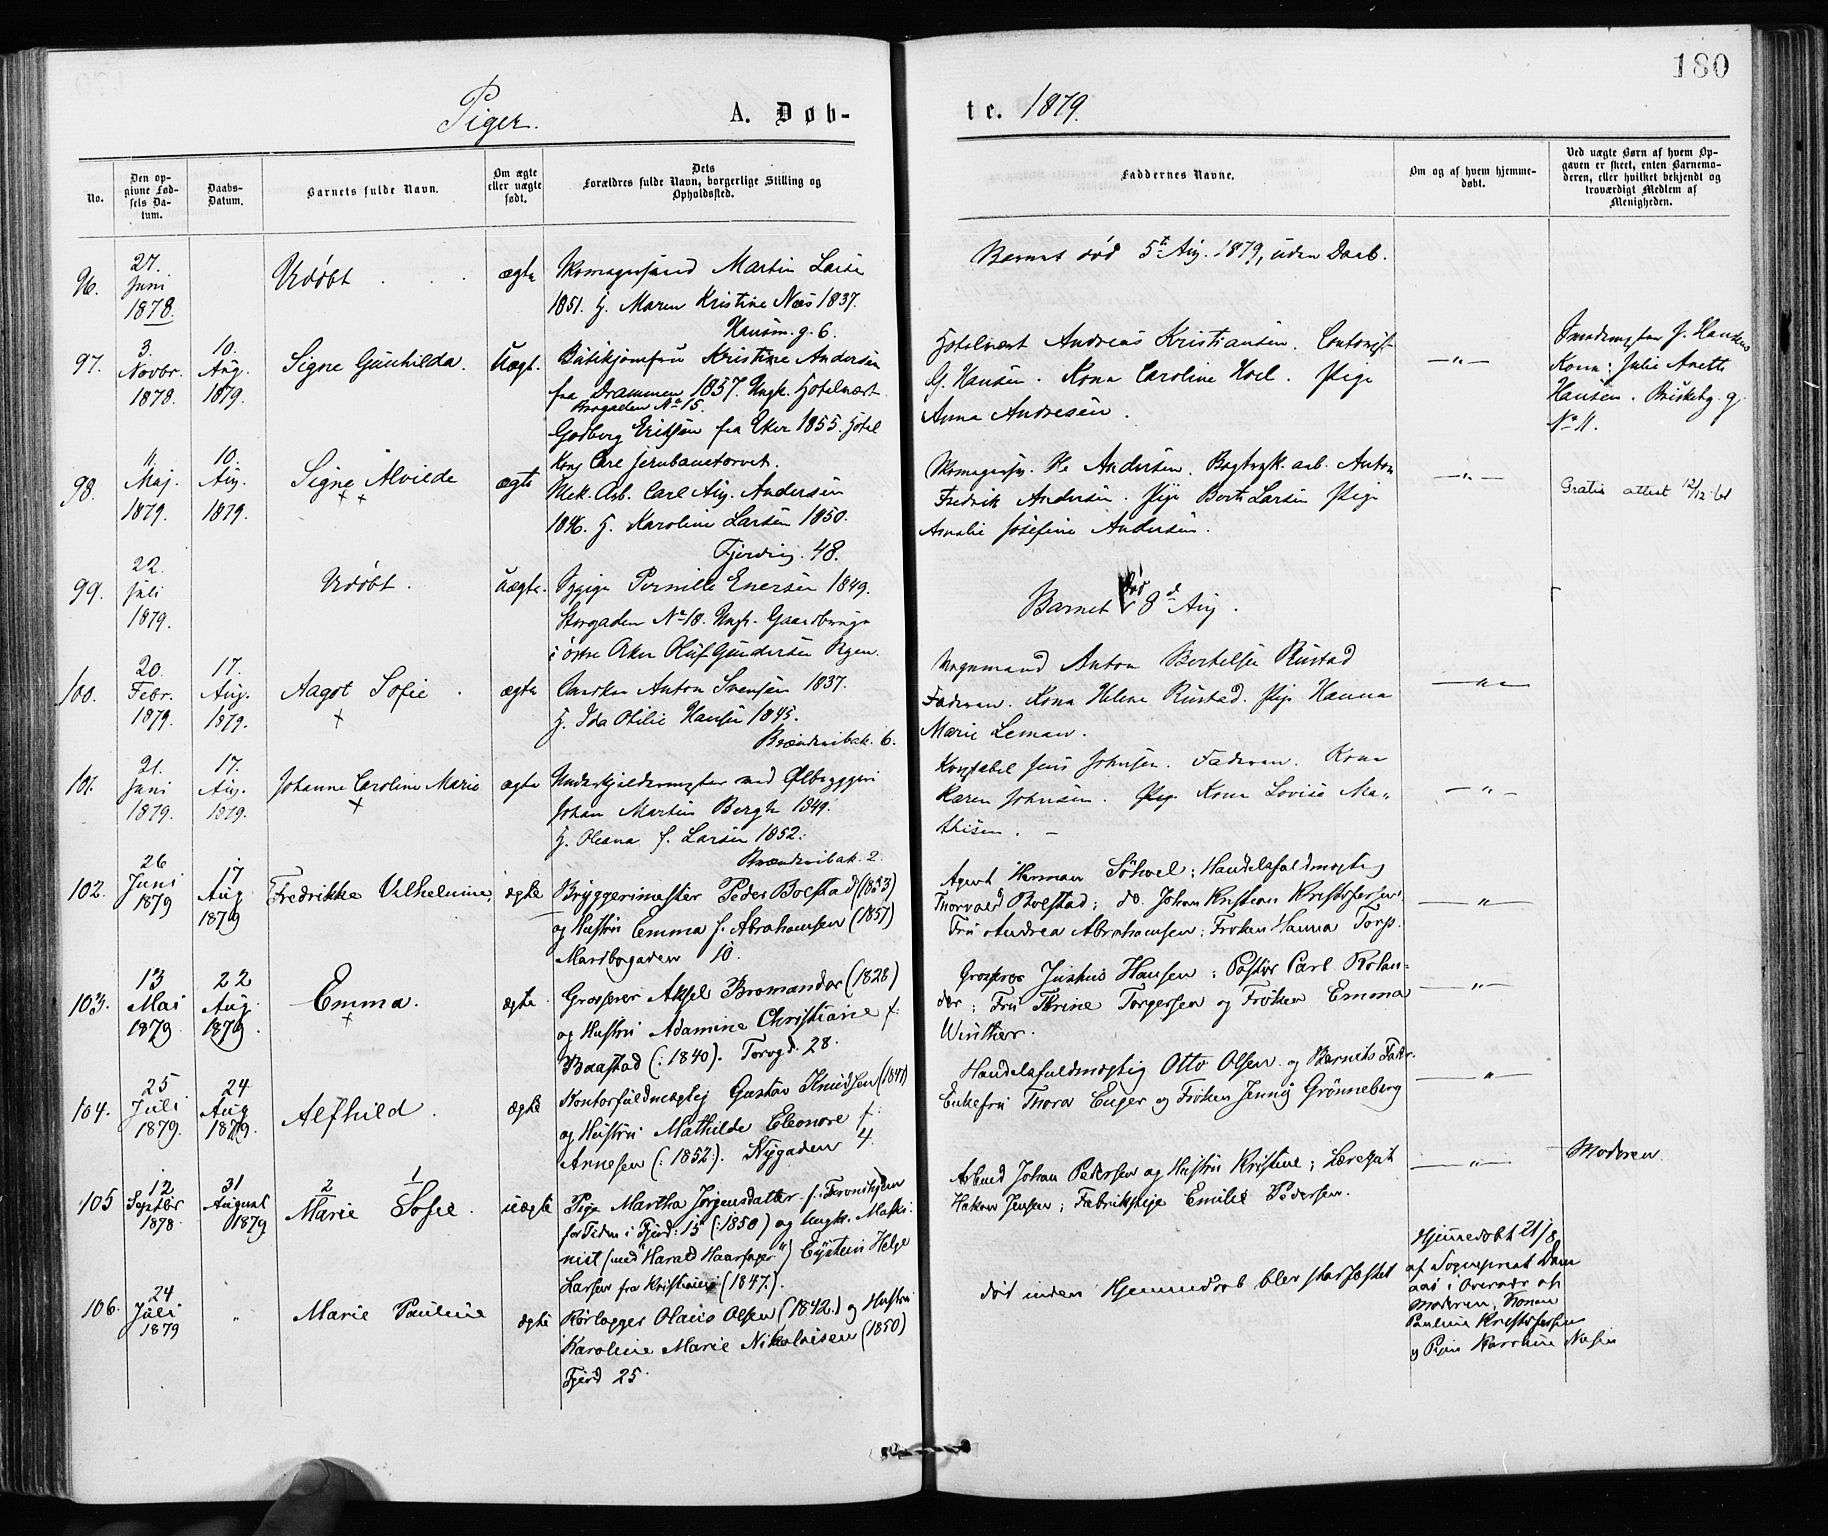 180
Piger. A. Døb-
te. 1879.
No.
Den op-
givne Fød-
sels Da-
tum.
Daabs-
Datum.
Barnets fulde Navn.
Om ægte
eller uægte
født.
Dets
Forældres fulde Navn, borgerlige Stilling og
Opholdssted.
Faddernes Navne.
Om og af hvem hjemme-
døbt.
Ved uægte Børn af hvem Op-
gaven er skeet, enten Barnemo-
deren, eller hvilket bekjendt og
troværdigt Medlem af
Menigheden.
96.
27.
Juni
1878.
Udøbt
ægte
Skomagersvend Martin Larsen
1851. H. Maren Kristine Næs 1837.
Hausm. g. 6.
Barnet død 5te Aug. 1879, uden Daab.
97.
3.
Novbr.
1878.
10.
Aug.
1879.
Signe Gunhilda.
Uægt.
Butikjomfru Kristine Andersen
fra Drammen 1857. Ungk. Hotelvært
Storgaden No 15.
Godberg Eriksen fra Eker 1855. Hotel
Kong Carl Jernbanetorvet.
Hotelvært Andreas Kristiansen. Contorist
G. Hansen. Kona Caroline Hoel. Pige
Anna Andresen.
—"—
Smedmester J. Hansens
Kona: Julie Anette
Hansen. Briskebg. g.
No 11.
98.
11.
Maj.
1879.
10.
Aug.
1879.
Signe Alvilde
ægte
Mek. Arb. Carl Aug. Andersen
1846. H. Karoline Larsen 1850.
Fjerding. 48.
Skomagersv. Ole Andersen. Bogtryk. arb. Anton
Fredrik Andersen. Pige Berte Larsen Pige
Amalie Josefine Andersen.
—"—
Gratis attest 12/12-61
99.
22.
Juli
1879.
Udøbt.
Uægte.
Sypige Pernille Enersen 1849.
Storgaden No 18. Ungk. Gaardbruger
i østre Aker Oluf Gundersen Rgen.
Barnet død 8d Aug.
100.
20.
Febr.
1879.
17.
Aug.
1879.
Aagot Sofie
ægte
Snedker Anton Svensen 1837.
H. Ida Otilie Hansen 1845.
Brænderibak. 6.
Vognmand Anton Bertelsen Rustad
Faderen. Kona Helene Rustad. Pige Hanna
Marie Leman.
—"—
101.
21.
Juni
1879.
17.
Aug.
1879.
Johanne Caroline Marie
ægte
Underkjeldermester ved Ølbryggeri
Johan Martin Bergh 1849.
H. Oleana f. Larsen 1852.
Brænderibak. 2.
Konstabel Jens Johnsen. Faderen. Kona
Karen Johnsen. Pige Kona Lovise Ma-
thisen.
—"—
102.
26
Juni
1879
17
Aug
1879
Fredrikke Vilhelmine,
ægte
Bryggerimester Peder Bolstad (1853)
og Hustru Emma f. Abrahamsen (1857)
Maridagaden 10.
Agent Herman Sohoel; Handelsfuldmægtig
Thorvald Bolstad; do. Johan Kristian Kristofersen;
Fru Andrea Abrahamsen; Frøken Hanna Torp.
—"—
103.
13
Mai
1879
22
Aug
1879
Emma.
ægte
Grosserer Aksel Bromander (1828)
og Hustru Adamine Christiane f.
Baastad (:1840). Torvgd. 28.
Grosserer Justus Hansen; Pastor Carl Rolan-
der; Fru Thrine Torgersen og Frøken Emma
Winther.
—"—
104.
25
Juli
1879.
24
Aug
1879.
Alfhild.
ægte
Kontorfuldmægtig Gustav Knudsen (1847)
og Hustru Mathilde Eleonore f.
Arnesen (:1852:). Nygaden 4.
Handelsfuldmægtig Otto Olsen og Barnets Fader.
Enkefru Thora Enger og Frøken Jenny Grønneberg
—"—
105
12
Septbr
1878.
31
August
1879
2 1
Marie Sofie.
uægte
Pige Martha Jørgensdatter f. Trondhjem
for Tiden i Fjerd: 15 (:1850) og Ungkr. Maski-
nist (med "Harald Haarfager") Eystein Helge
Larsen fra Kristiania (1847.).
Arbmd Johan Pedersen og Hustru Kristine; Læregut
Hakon Jensen; Fabrikspige Emilie Pedersen.
—"—
Moderen.
106.
24
Juli
1879
"
Marie Pauline
ægte
Rørlægger Olaus Olsen (1842.) og Hustru
Karoline Marie Nikolaisen (1850)
Fjerd 25.
død inden Hjemmedaab blev stadfæstet
Hjemmedøbt 21/8
af Sogneprest Dam
aas i Overvær af
Moderen, Konen
Pauline Kristofersen
og Pigen Karoline Nilsen